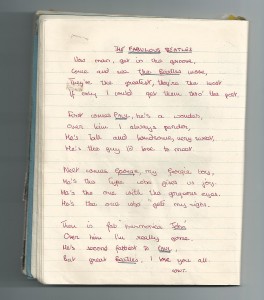 THE FABULOUS BEATLES
Now man, get in the groove,
Come and see the Beatles move,
They're the greatest, they're the most
If only I could get them thro' the post.
First comes Paul, he's a wonder,
Over him I always ponder,
He's tall and handsome, very sweet,
He's the guy I'd love to meet
Next comes George, my Georgie boy,
He's the type who gives us joy.
He's the one with the gorgeous eyes.
He's the one who gets my sighs.
Then is fab "hummmmm" John
Over him I'm really gone.
He's second fattest to
But great Beatles, I love you all